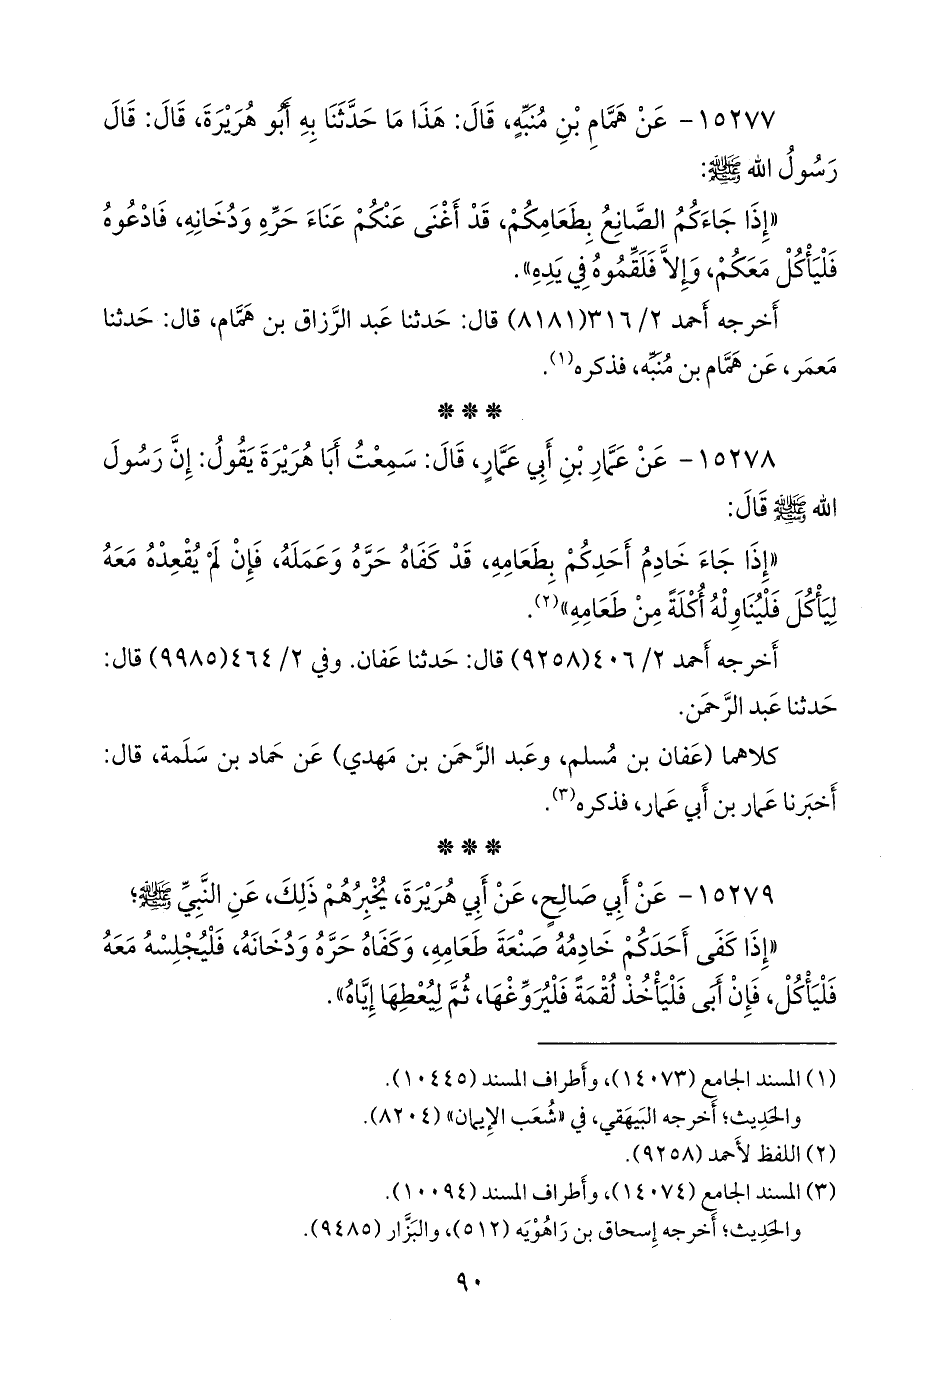 ١٥٢٧٧- عَنْ هَمَّامِ بْنِ مُنَبِّهٍ، قَالَ: هَذَا مَا حَدَّثَنَا بِهِ أَبُو هُرَيْرَةَ، قَالَ: قَالَ
رَسُولُ الله ﷺ:
«إِذَا جَاءَكُمُ الصَّانِعُ بِطَعَامِكُمْ، قَدْ أَغْنَى عَنْكُمْ عَنَاءَ حَرِّهِ وَدُخَانِهِ، فَادْعُوهُ
فَلْيَأْكُلْ مَعَكُمْ، وَإِلاَّ فَلَقِّمُوهُ فِي يَدِهِ».
أَخرجه أَحمد ٢/ ٣١٦(٨١٨١) قال: حَدثنا عَبد الرَّزاق بن هَمَّام، قال: حَدثنا
مَعمَر، عَن هَمَّام بن مُنَبِّه، فذكره(١).
* * *
١٥٢٧٨- عَنْ عَمَّارِ بْنِ أَبِي عَمَّارٍ، قَالَ: سَمِعْتُ أَبَا هُرَيْرَةَ يَقُولُ: إِنَّ رَسُولَ
الله ﷺ قَالَ:
«إِذَا جَاءَ خَادِمُ أَحَدِكُمْ بِطَعَامِهِ، قَدْ كَفَاهُ حَرَّهُ وَعَمَلَهُ، فَإِنْ لَمْ يُقْعِدْهُ مَعَهُ
لِيَأْكُلَ فَلْيُنَاوِلْهُ أُكْلَةً مِنْ طَعَامِهِ»(٢).
أَخرجه أَحمد ٢/ ٤٠٦(٩٢٥٨) قال: حَدثنا عَفان. وفي ٢/ ٤٦٤(٩٩٨٥) قال:
حَدثنا عَبد الرَّحمَن.
كلاهما (عَفان بن مُسلم، وعَبد الرَّحمَن بن مَهدي) عَن حَماد بن سَلَمة، قال:
أَخبَرنا عَمار بن أَبي عَمار، فذكره(٣).
* * *
١٥٢٧٩- عَنْ أَبِي صَالِحٍ، عَنْ أَبِي هُرَيْرَةَ، يُخْبِرُهُمْ ذَلِكَ، عَنِ النَّبِيِّ ﷺ؛
«إِذَا كَفَى أَحَدَكُمْ خَادِمُهُ صَنْعَةَ طَعَامِهِ، وَكَفَاهُ حَرَّهُ وَدُخَانَهُ، فَلْيُجْلِسْهُ مَعَهُ
فَلْيَأْكُلْ، فَإِنْ أَبَى فَلْيَأْخُذْ لُقْمَةً فَلْيُرَوِّغْهَا، ثُمَّ لِيُعْطِهَا إِيَّاهُ».
(١) المسند الجامع (١٤٠٧٣)، وأَطراف المسند (١٠٤٤٥).
والحَدِيث؛ أَخرجه البَيهَقي، في «شُعَب الإِيمان» (٨٢٠٤).
(٢) اللفظ لأَحمد (٩٢٥٨).
(٣) المسند الجامع (١٤٠٧٤)، وأَطراف المسند (١٠٠٩٤).
والحَدِيث؛ أَخرجه إِسحاق بن رَاهُوْيَه (٥١٢)، والبَزَّار (٩٤٨٥).
٩٠